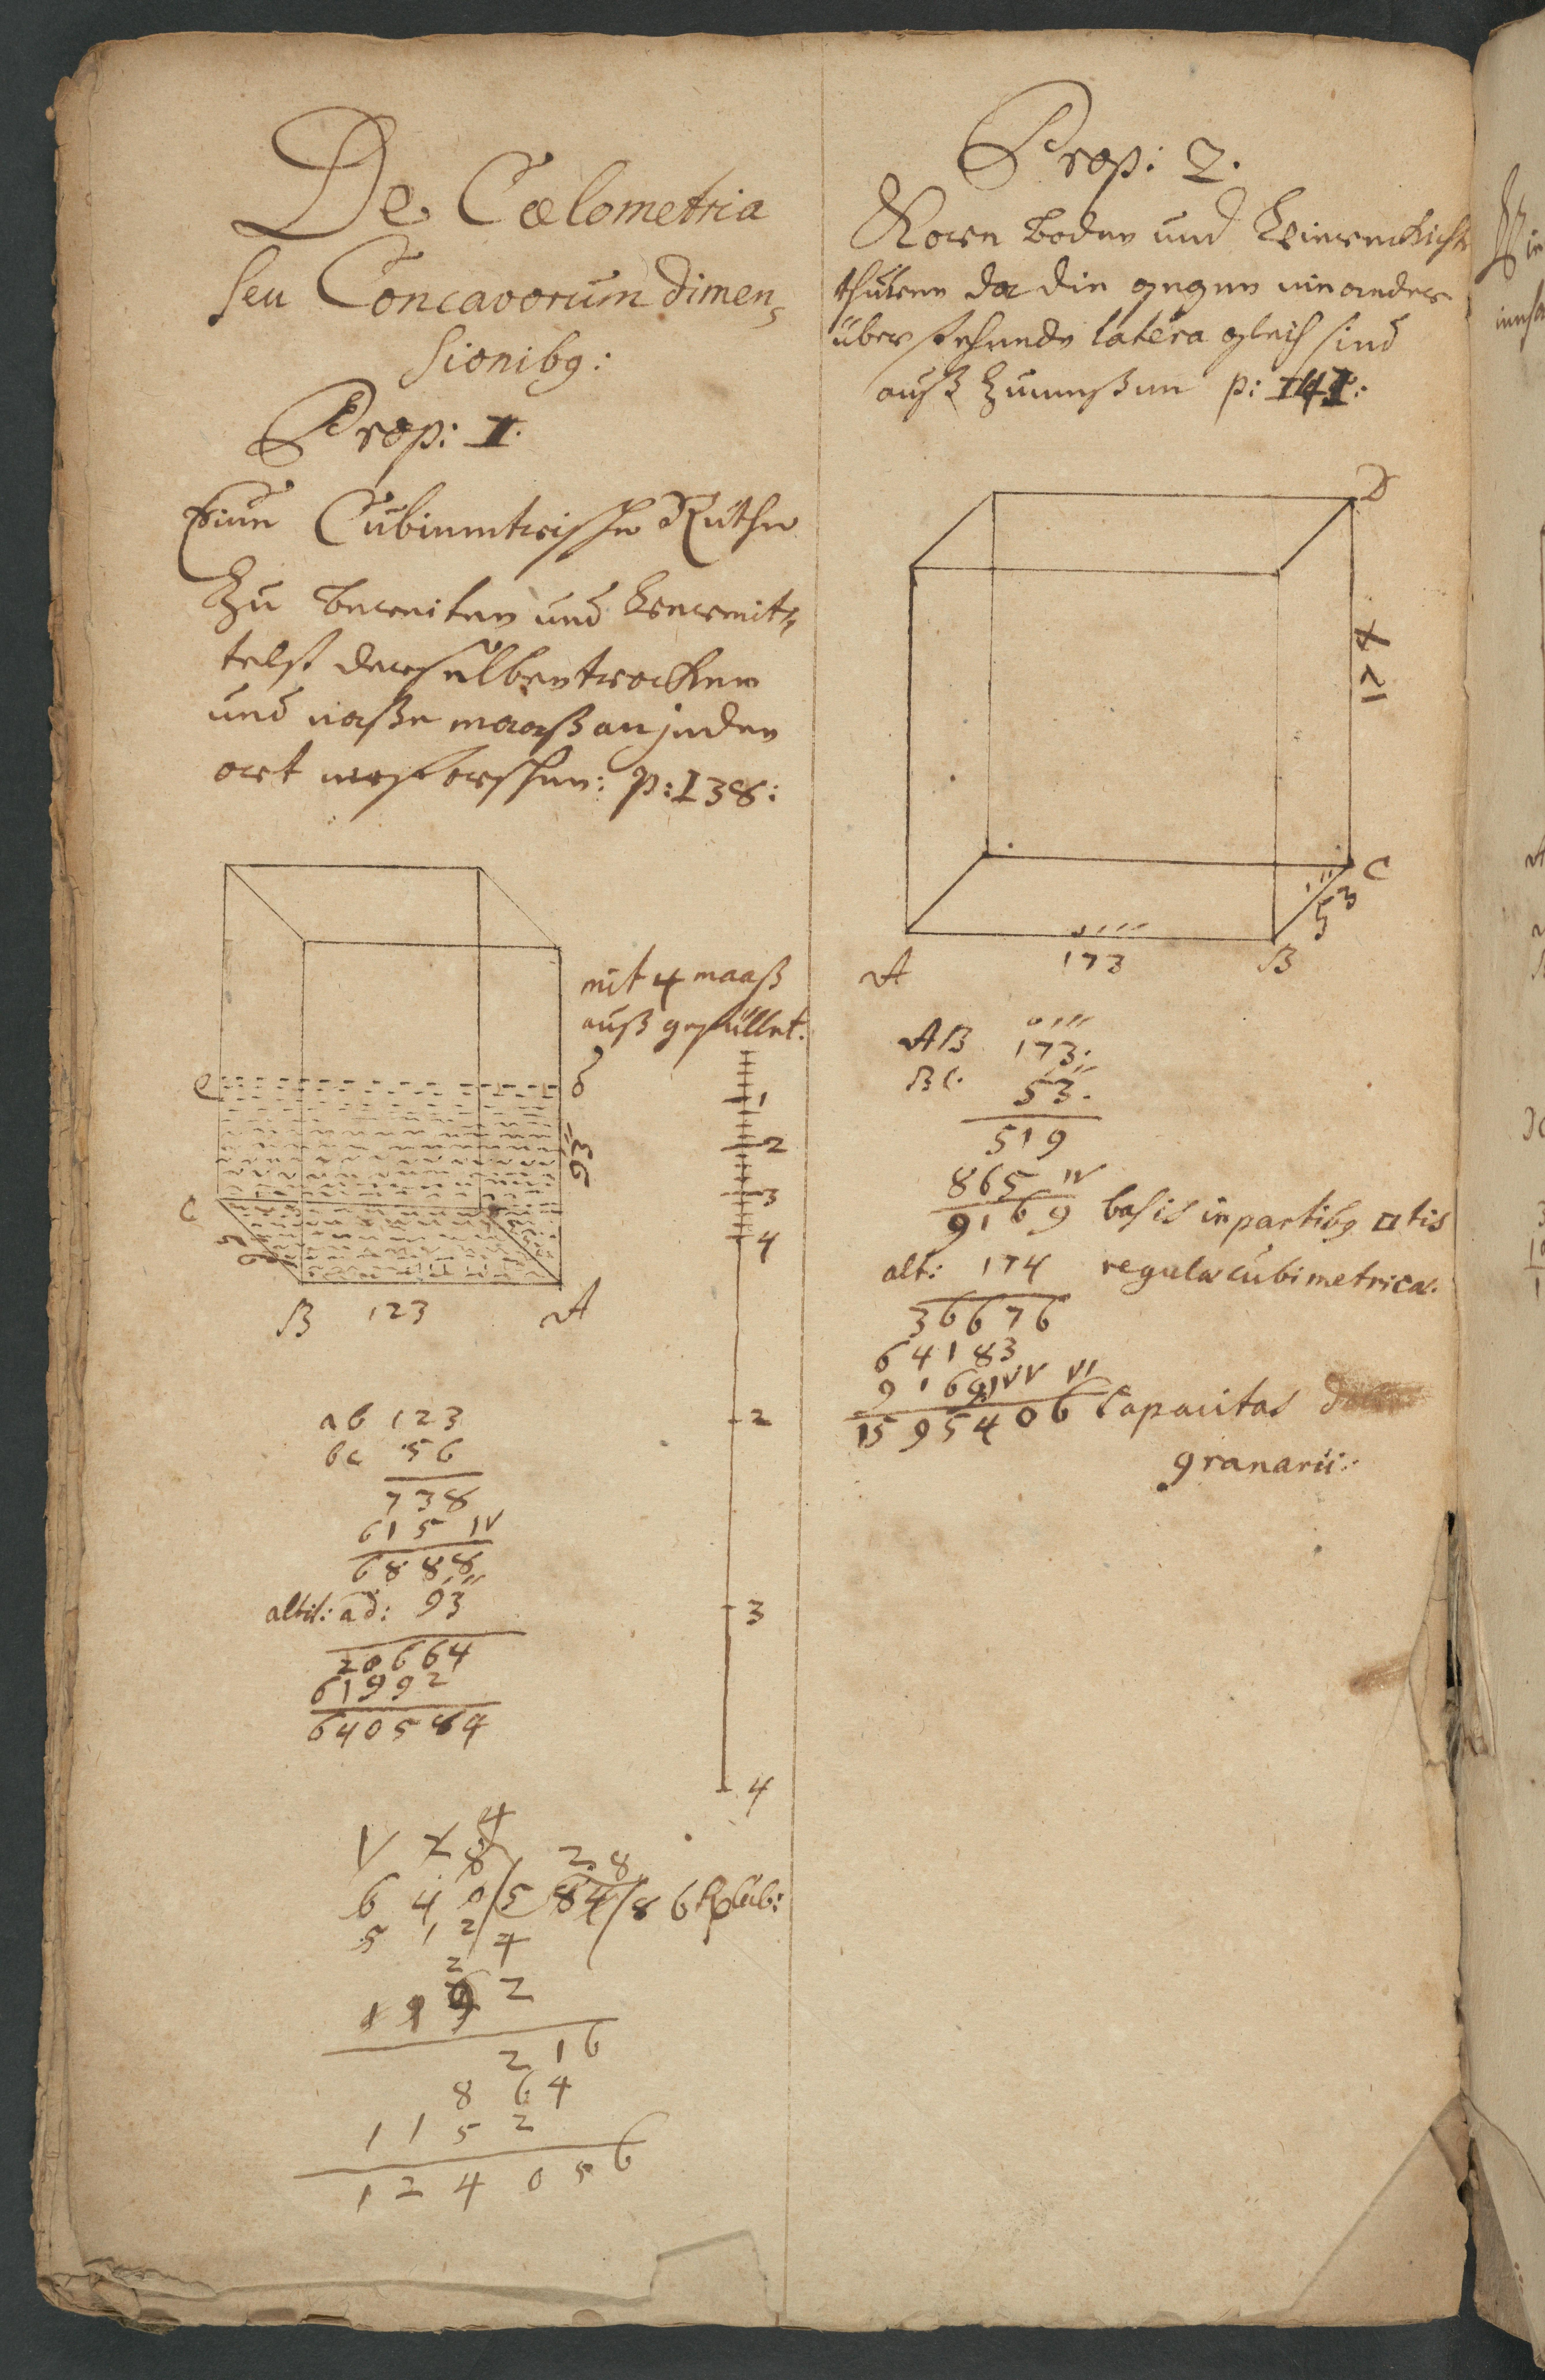 De Cœlometria
seu Concavorum dimen,
sionibq:
Prop: I.
Eine Cubimetrische Ruthe
Zu bereiten und Vermit,
telst derselben trocken
und naße maaß an jeden
ort erforschen: p: 138:
mit 4 maaß
auß gefüllet.
e
d
1
2
93''
3
C
4
56
B 123 A
2
ab 123
bc 56
738
615 IV
6888
altit: ad: 93''
3
20664
61992
640584
4
4
V 7 8 2 8
6 4 0/5 84/8 6 Rad: Cub:
5 1 2/4
2
1 1 9 2
2 1 6
8 6 4
1 1 5 2
1 2 4 0 5 6
Prop: 2.
Korn Boden und
da die gegen einander
über stehende latera gleich sind
auß Zumeßen p: 141:
D
174
C
53
173
A B
AB 173.
BC. 53.
519
865 IV
9169 basis in partibq □tis
alt: 174 regulæ cubimetricæ.
36676
64183
9169 IV V VI
1595406 Capacitas
granarii: